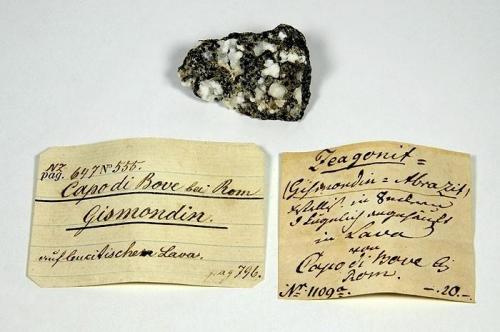 Nr
pag. 647 No 555.
Capo di Bove bei Rom
Gismondin.
auf leucitischer Lava.
pag 796.
Zeagonit=
(Gismondin = Abrazit)
in
in Lava
von
Capo di Bove bj
Rom.
Nr. 1109a. —.20.—